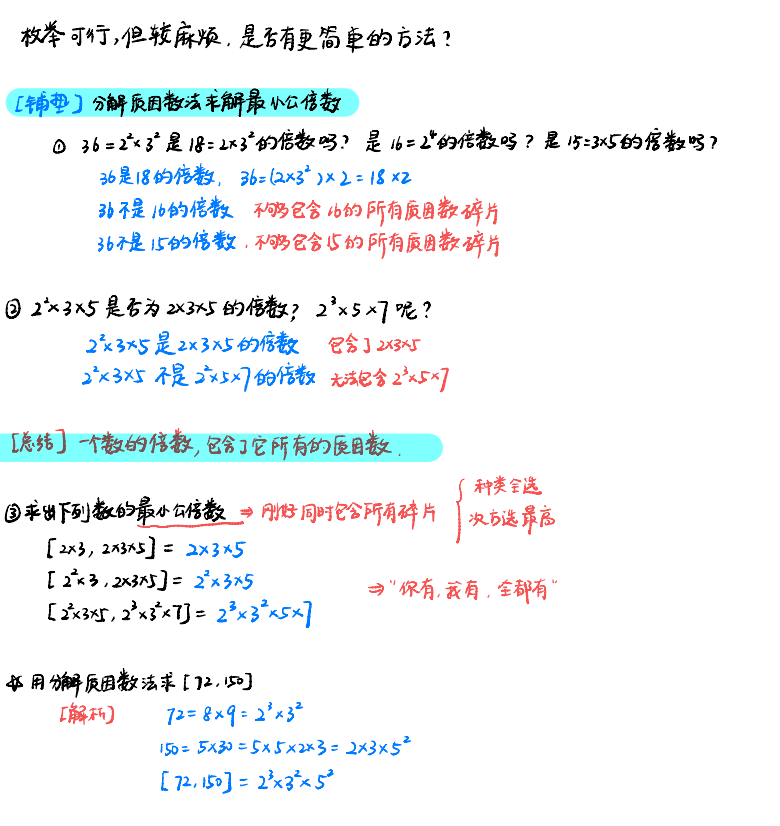 枚举可行,但较麻烦.是否有更简单的方法?
[铺垫] 分解质因数法求解最小公倍数
① 36=2²×3² 是 18=2×3² 的倍数吗? 是 16=2⁴的倍数吗? 是 15=3×5的倍数吗?
36是18的倍数, 36=(2×3²)×2=18×2
36不是16的倍数 不能够包含16的所有质因数碎片
36不是15的倍数.不能够包含15的所有质因数碎片
② 2²×3×5 是否为 2×3×5 的倍数? 2³×5×7呢?
2²×3×5是2×3×5的倍数 包含了2×3×5
2²×3×5 不是 2²×5×7的倍数 无法包含2³×5×7
[总结] 一个数的倍数,包含了它所有的质因数.
③求出下列数的最小公倍数 ⇒ 刚好同时包含所有碎片 { 种类全选
次方选最高
[2×3, 2×3×5] = 2×3×5
[2²×3, 2×3×5] = 2²×3×5
⇒"你有,我有,全都有"
[2²×3×5, 2³×3²×7] = 2³×3²×5×7
用分解质因数法求[72,150]
[解析] 72=8×9=2³×3²
150=5×30=5×5×2×3=2×3×5²
[72,150]=2³×3²×5²